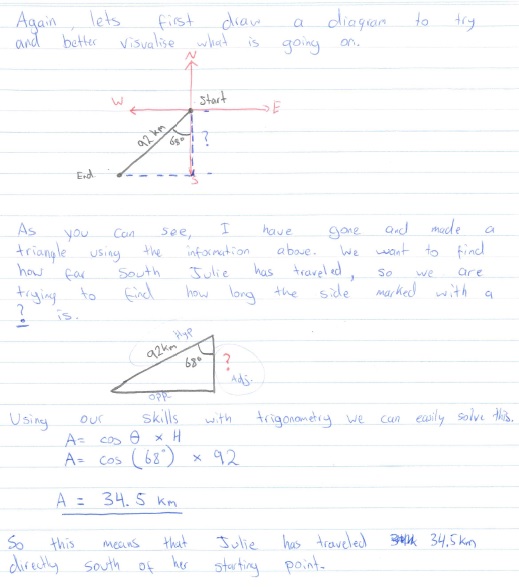 Again, lets first draw a diagram to try
and better visualise what is going on.
N
W
Start
E
92 km
68°
?
End
S
As you can see, I have gone and made a
triangle using the information above. We want to find
how far South Julie has traveled, so we are
trying to find how long the side marked with a
? is.
Hyp
92km
68°
?
Adj.
opp.
Using our skills with trigonometry we can easily solve this.
A= cos θ × H
A= cos (68°) × 92
A = 34.5 km
So this means that Julie has traveled 34.5km
directly south of her starting point.